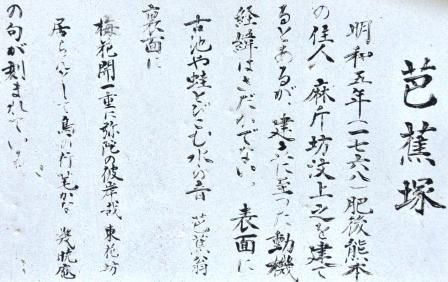 芭蕉塚
明和五年(一七六八)肥後熊本
の住人 麻斤坊汶上之を建て
るとあるが、建立に至った動機
経緯はさだかでない。 表面に
古池や蛙とびこむ水の音 芭蕉翁
裏面に
梅犯開一重に弥陀の彼岸哉 東花坊
居らずして鳥の行 かな 幾暁庵
の句が刻まれている